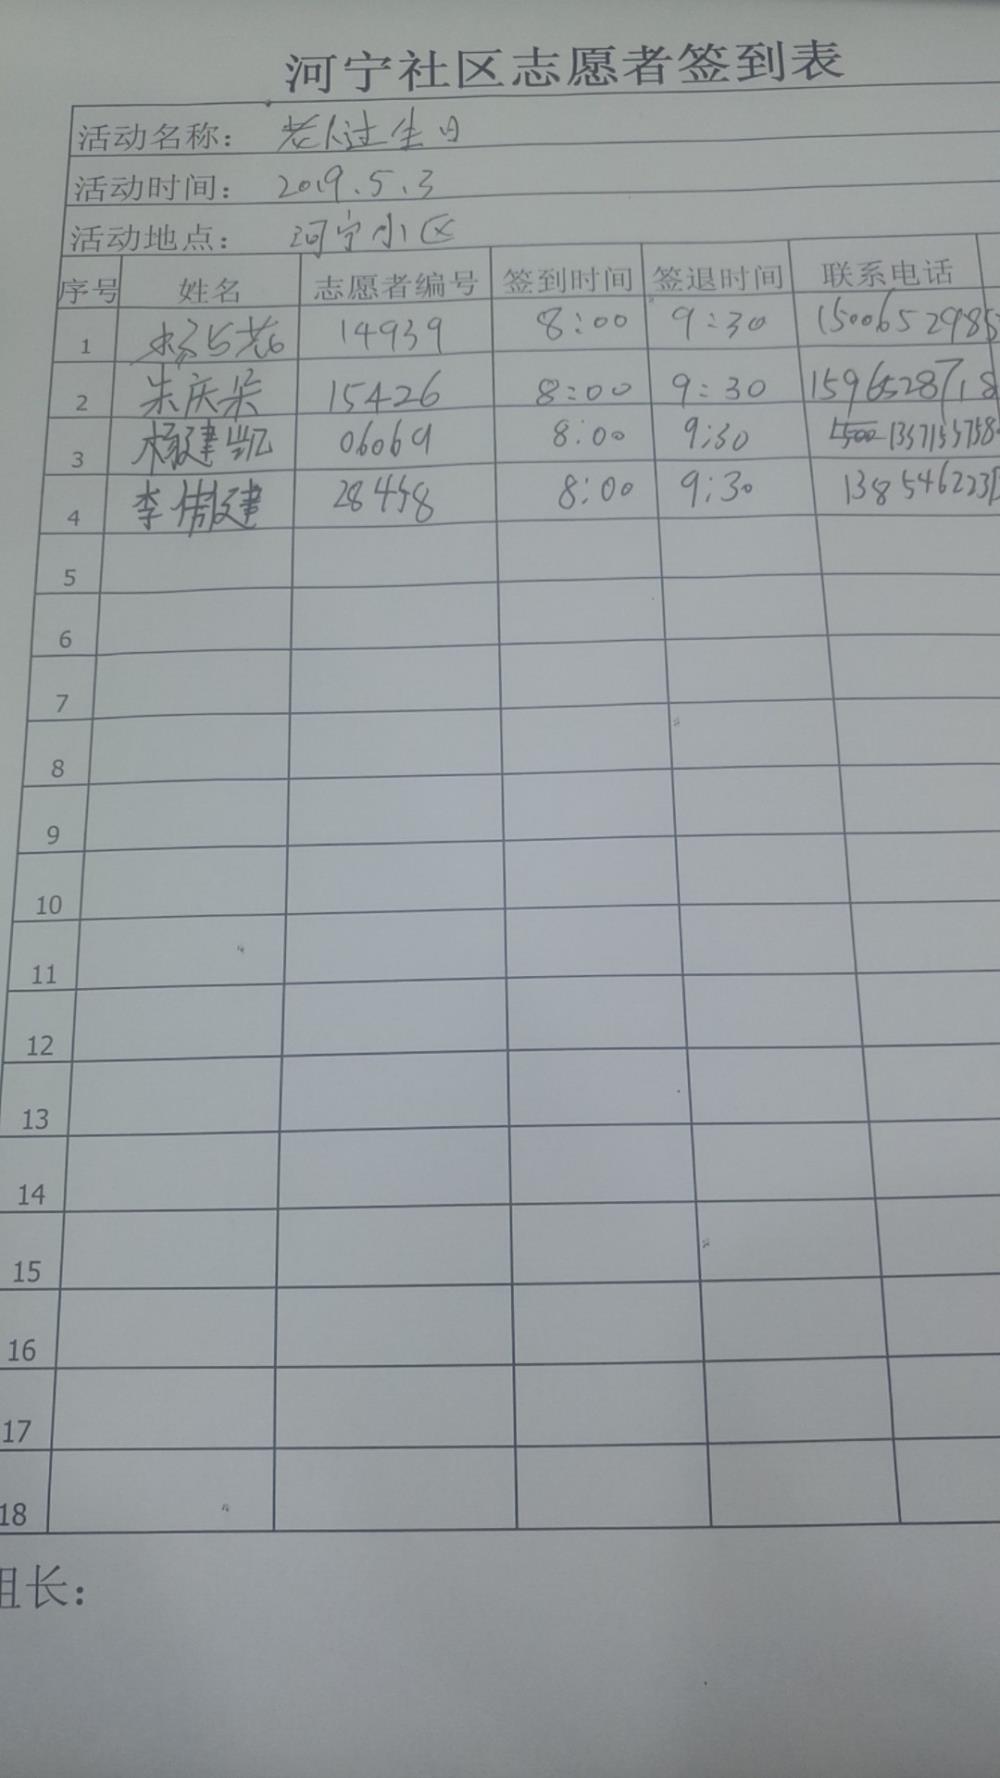 河宁社区志愿者签到表
活动名称： 老人过生日
活动时间： 2019.5.3
活动地点： 河宁小区
序号 姓名 志愿者编号 签到时间 签退时间 联系电话
1 14939 8:00 9:30 1500652985
2 朱庆荣 15426 8:00 9:30 1596528718
3 杨建凯 06069 8:00 9:30
4 李伟建 28458 8:00 9:30 1385462231
5
6
7
8
9
10
11
12
13
14
15
16
17
18
组长：